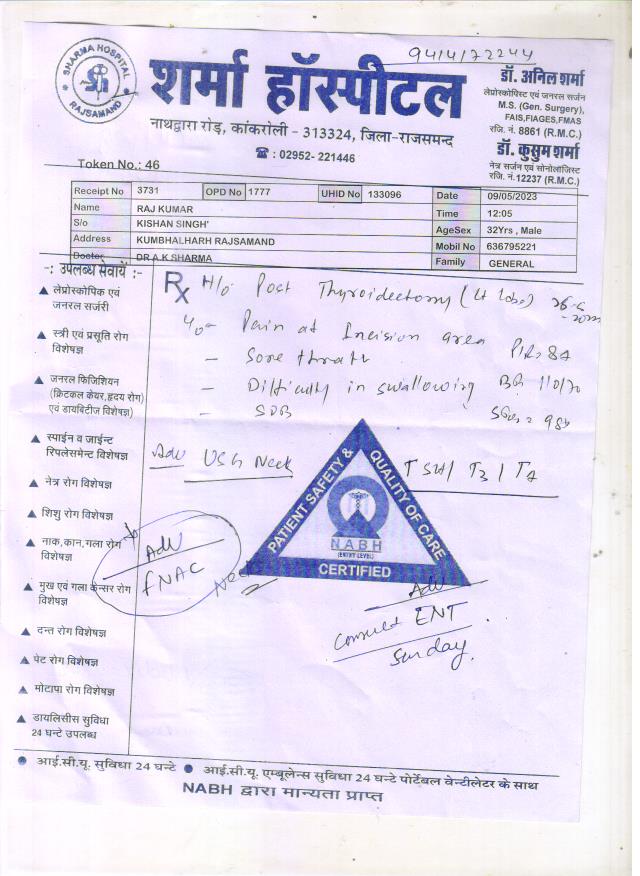 9414172244
SHARMA HOSPITAL
RAJSAMAND
शर्मा हॉस्पीटल
नाथद्वारा रोड़, कांकरोली - 313324, जिला-राजसमन्द
☎ : 02952- 221446
डॉ. अनिल शर्मा
लेप्रोस्कोपिस्ट एवं जनरल सर्जन
M.S. (Gen. Surgery),
FAIS,FIAGES,FMAS
रजि. नं. 8861 (R.M.C.)
डॉ. कुसुम शर्मा
नेत्र सर्जन एवं सोनोलॉजिस्ट
रजि. नं.12237 (R.M.C.)
Token No.: 46
Receipt No 3731 OPD No 1777 UHID No 133096 Date 09/05/2023
Name RAJ KUMAR Time 12:05
S/o KISHAN SINGH' AgeSex 32Yrs , Male
Address KUMBHALHARH RAJSAMAND Mobil No 636795221
Doctor DR A.K.SHARMA Family GENERAL
-: उपलब्ध सेवायें :-
▲ लेप्रोस्कोपिक एवं
जनरल सर्जरी
▲ स्त्री एवं प्रसूति रोग
विशेषज्ञ
▲ जनरल फिजिशियन
(क्रिटकल केयर,हृदय रोग
एवं डायबिटीज विशेषज्ञ)
▲ स्पाईन व जाईन्ट
रिपलेसमेन्ट विशेषज्ञ
▲ नेत्र रोग विशेषज्ञ
▲ शिशु रोग विशेषज्ञ
▲ नाक,कान,गला रोग
विशेषज्ञ
▲ मुख एवं गला केन्सर रोग
विशेषज्ञ
▲ दन्त रोग विशेषज्ञ
▲ पेट रोग विशेषज्ञ
▲ मोटापा रोग विशेषज्ञ
▲ डायलिसीस सुविधा
24 घन्टे उपलब्ध
Rx H/o Post Thyroidectomy (Lt lobe)
Pain at Incision area
- Sore throat
- Difficulty in swallowing BP 110/70
- SOB
Adv USG Neck TSH / T3 / T4
Adv
FNAC
Neck
PATIENT SAFETY & QUALITY OF CARE
NABH
(ENTRY LEVEL)
CERTIFIED
Adv
Consult ENT
Sunday
● आई.सी.यू. सुविधा 24 घन्टे ● आई.सी.यू. एम्बूलेन्स सुविधा 24 घन्टे पोर्टेबल वेन्टीलेटर के साथ
NABH द्वारा मान्यता प्राप्त